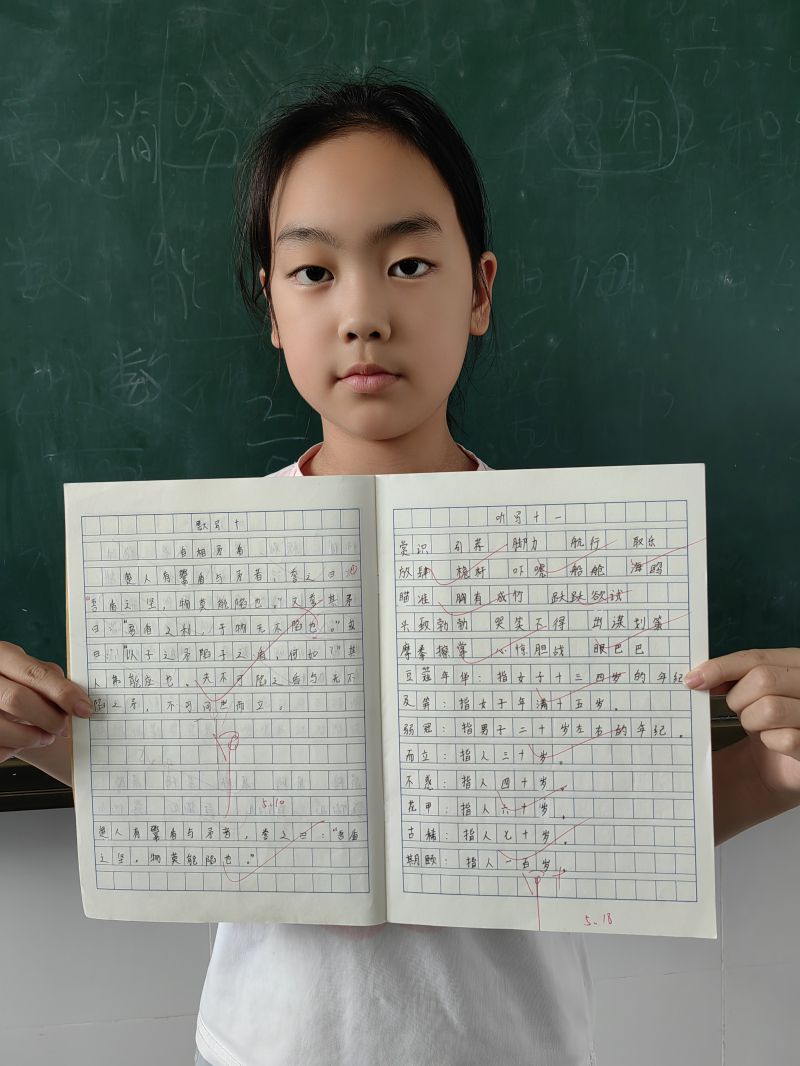 默写十
自相矛盾
楚人有鬻盾与矛者，誉之曰：
"吾盾之坚，物莫能陷也。"又誉其矛
曰："吾矛之利，于物无不陷也。"或
曰："以子之矛陷子之盾，何如？"其
人弗能应也。夫不可陷之盾与无不
陷之矛，不可同世而立。
5.10
楚人有鬻盾与矛者，誉之曰："吾盾
之坚，物莫能陷也。"
听写十一
赏识 引荐 脚力 航行 取乐
放肆 桅杆 吓唬 船舱 海鸥
瞄准 胸有成竹 跃跃欲试
兴致勃勃 哭笑不得 出谋划策
摩拳擦掌 心惊胆战 眼巴巴
豆蔻年华：指女子十三四岁的年纪
及笄：指女子年满十五岁。
弱冠：指男子二十岁左右的年纪。
而立：指人三十岁。
不惑：指人四十岁。
花甲：指人六十岁。
古稀：指人七十岁。
期颐：指人一百岁。
5.18